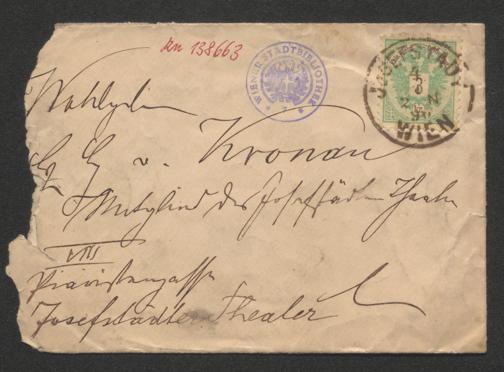 an 138663
WIENER STADTBIBLIOTHEK
JOSEFSTADT
4
8
3 N
90
WIEN
Wohlgeb
v. Kronau
Mitglied des Josefstädter Theater
VIII
Piaristengasse
Josefstädter Theater